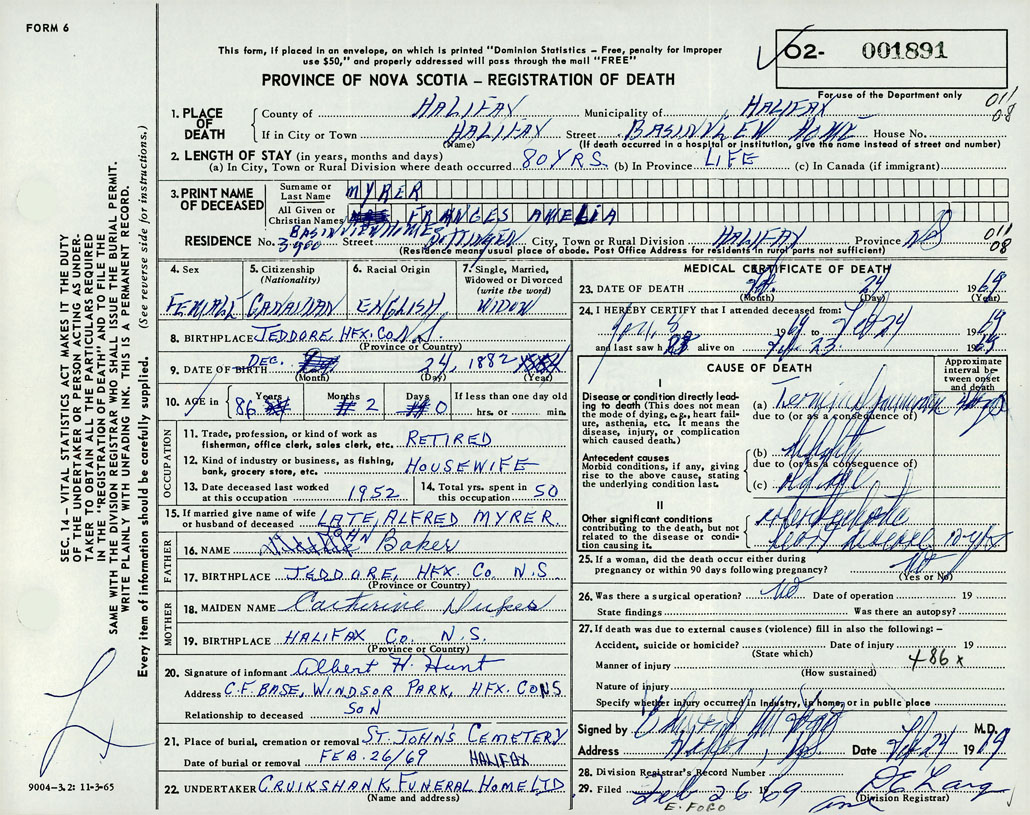 FORM 6
This form, if placed in an envelope, on which is printed "Dominion Statistics – Free, penalty for improper
use $50," and properly addressed will pass through the mail "FREE"
O2- 001891
PROVINCE OF NOVA SCOTIA – REGISTRATION OF DEATH
For use of the Department only
011
08
1. PLACE OF DEATH
County of HALIFAX Municipality of HALIFAX
If in City or Town HALIFAX Street BASINVIEW HOME House No.
(Name) (If death occurred in a hospital or institution, give the name instead of street and number)
2. LENGTH OF STAY (in years, months and days)
(a) In City, Town or Rural Division where death occurred 80 YRS. (b) In Province LIFE (c) In Canada (if immigrant)
3. PRINT NAME OF DECEASED
Surname or Last Name MYRER
All Given or Christian Names FRANCES AMELIA
BASINVIEW HOME
RESIDENCE No. 3900 Street City, Town or Rural Division HALIFAX Province NS
011
08
(Residence means usual place of abode. Post Office Address for residents in rural parts not sufficient)
4. Sex
FEMALE
5. Citizenship (Nationality)
CANADIAN
6. Racial Origin
ENGLISH
7. Single, Married, Widowed or Divorced (write the word)
WIDOW
8. BIRTHPLACE JEDDORE, HFX. CO. N.S.
(Province or Country)
9. DATE OF BIRTH DEC. 24, 1882
(Month) (Day) (Year)
10. AGE in Years 86 Months 2 Days 0 If less than one day old
hrs. or min.
OCCUPATION
11. Trade, profession, or kind of work as fisherman, office clerk, sales clerk, etc. RETIRED
12. Kind of industry or business, as fishing, bank, grocery store, etc. HOUSEWIFE
13. Date deceased last worked at this occupation 1952
14. Total yrs. spent in this occupation 50
15. If married give name of wife or husband of deceased LATE, ALFRED MYRER.
FATHER
16. NAME JOHN Baker
17. BIRTHPLACE JEDDORE, HFX. CO. N.S.
(Province or Country)
MOTHER
18. MAIDEN NAME Catherine
19. BIRTHPLACE HALIFAX CO. N.S.
(Province or Country)
20. Signature of informant Albert H. Hunt
Address C.F. BASE, WINDSOR PARK, HFX. CO NS
Relationship to deceased SON
21. Place of burial, cremation or removal ST. JOHN'S CEMETERY
Date of burial or removal FEB. 26/69 HALIFAX
22. UNDERTAKER CRUIKSHANK FUNERAL HOME LTD.
(Name and address)
MEDICAL CERTIFICATE OF DEATH
23. DATE OF DEATH 24 1969
(Month) (Day) (Year)
24. I HEREBY CERTIFY that I attended deceased from:
1969 to Feb 24 1969
and last saw h alive on Feb. 23 1969
CAUSE OF DEATH
Approximate interval between onset and death
I
Disease or condition directly leading to death (This does not mean the mode of dying, e.g., heart failure, asthenia, etc. It means the disease, injury, or complication which caused death.)
(a) Terminal pneumonia
due to (or as a consequence of)
Antecedent causes
Morbid conditions, if any, giving rise to the above condition, stating the underlying condition last.
(b)
due to (or as a consequence of)
(c)
II
Other significant conditions
contributing to the death, but not related to the disease or condition causing it.
heart disease
25. If a woman, did the death occur either during pregnancy or within 90 days following pregnancy? No
(Yes or No)
26. Was there a surgical operation? No Date of operation 19
State findings Was there an autopsy?
27. If death was due to external causes (violence) fill in also the following: –
Accident, suicide or homicide? Date of injury 19
(State which)
486x
Manner of injury
(How sustained)
Nature of injury
Specify whether injury occurred in industry, in home, or in public place
Signed by M.D.
Address Date Feb 24 1969
28. Division Registrar's Record Number
29. Filed Feb 26 1969
(Division Registrar)
E. FORD
SEC. 14 – VITAL STATISTICS ACT MAKES IT THE DUTY
OF THE UNDERTAKER OR PERSON ACTING AS UNDER-
TAKER TO OBTAIN ALL THE PARTICULARS REQUIRED
IN THE "REGISTRATION OF DEATH" AND TO FILE THE
SAME WITH THE DIVISION REGISTRAR WHO SHALL ISSUE THE BURIAL PERMIT.
WRITE PLAINLY WITH UNFADING INK. THIS IS A PERMANENT RECORD.
Every item of information should be carefully supplied. (See reverse side for instructions.)
9004-3.2: 11-3-65